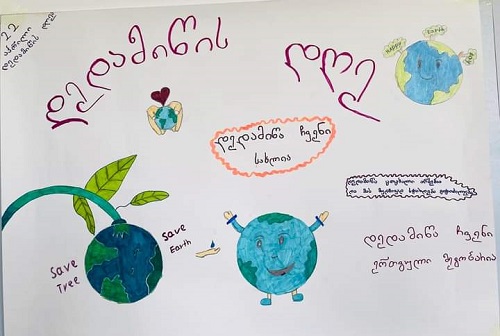 22
აპრილი
დედამიწის დღე
დედამიწის დღე
HAPPY
EARTH
DAY
დედამიწა ჩვენი
სახლია
Save
Tree
Save
Earth
დედამიწა ჩვენი
ერთგული მეგობარია